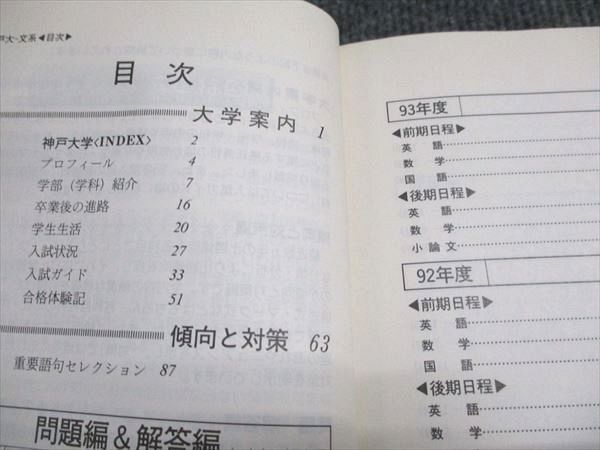 戸大-文系◀目次▶
目 次
大学案内 1
神戸大学〈INDEX〉 2
プロフィール 4
学部（学科）紹介 7
卒業後の進路 16
学生生活 20
入試状況 27
入試ガイド 33
合格体験記 51
傾向と対策 63
重要語句セレクション 87
問題編&解答編
93年度
◀前期日程▶
英 語
数 学
国 語
◀後期日程▶
英 語
数 学
小 論 文
92年度
◀前期日程▶
英 語
数 学
国 語
◀後期日程▶
英 語
数 学